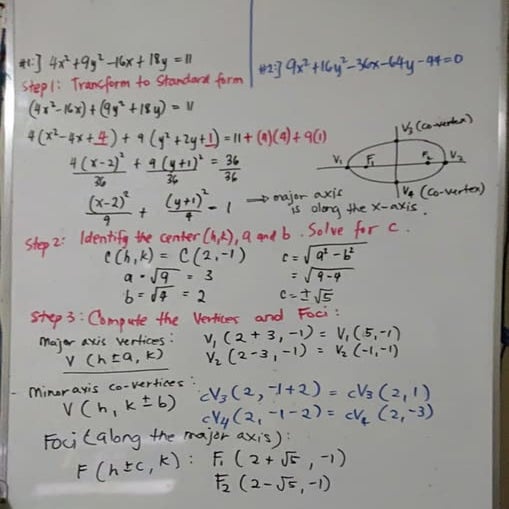 #1:] 4x² + 9y² - 16x + 18y = 11
#2:] 9x² + 16y² - 36x - 64y - 44 = 0
Step 1: Transform to Standard form
(4x² - 16x) + (9y² + 18y) = 11
4(x² - 4x + 4) + 9(y² + 2y + 1) = 11 + (4)(4) + 9(1)
4(x-2)²/36 + 9(y+1)²/36 = 36/36
(x-2)²/9 + (y+1)²/4 = 1 → major axis
is along the x-axis.
V₃ (co-vertex)
V₁ F₁ F₂ V₂
V₄ (co-vertex)
Step 2: Identify the center (h,k), a and b. Solve for c.
C(h,k) = C(2,-1) c = √a² - b²
a = √9 = 3 = √9-4
b = √4 = 2 c = ± √5
Step 3: Compute the Vertices and Foci:
Major axis vertices: V₁ (2+3, -1) = V₁ (5,-1)
V (h±a, k) V₂ (2-3, -1) = V₂ (-1,-1)
- Minor axis co-vertices: cV₃ (2, -1+2) = cV₃ (2, 1)
V (h, k±b) cV₄ (2, -1-2) = cV₄ (2, -3)
Foci (along the major axis):
F (h±c, k): F₁ (2+√5, -1)
F₂ (2-√5, -1)